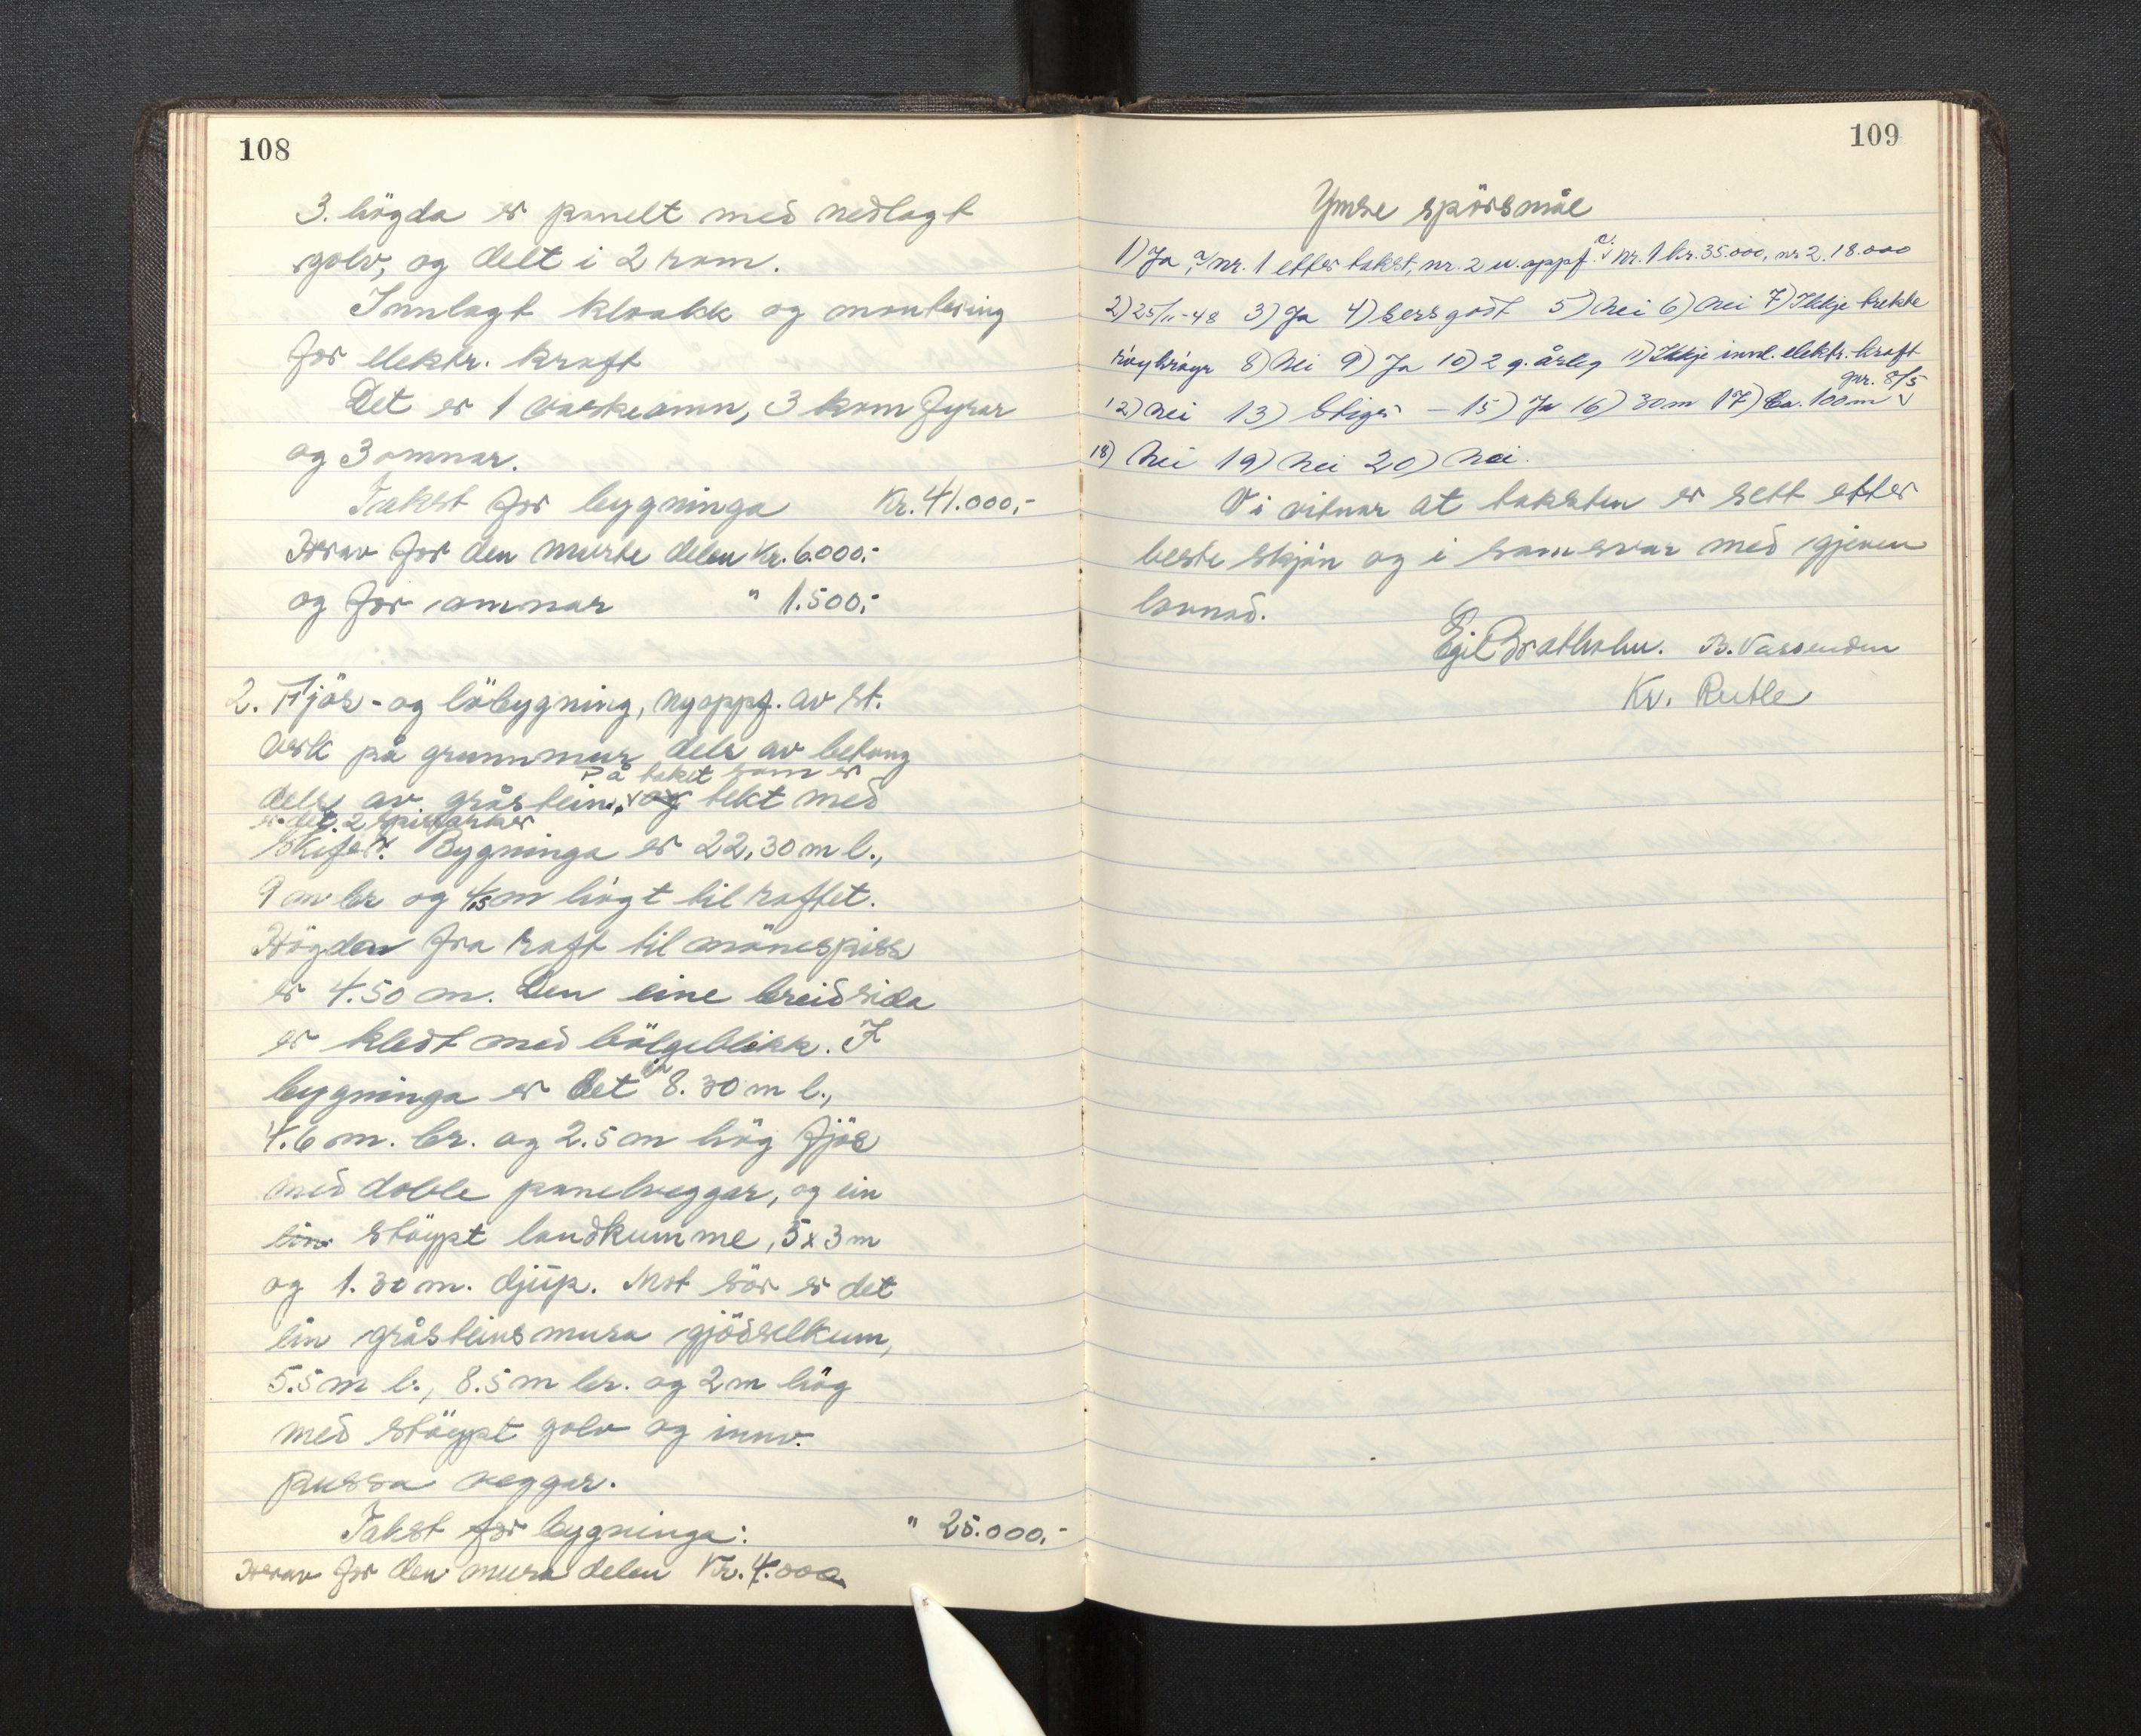 108
3. högda er panelt med nedlagt
golv, og delt i 2 rom.
Innlagt kloakk og montering
for elektr. kraft
Det er 1 vaskeomn, 3 komfyrar
og 3 omnar.
Takst for bygninga Kr. 41.000,-
Herav for den murte delen Kr. 6.000.-
og for omnar " 1.500,-
2. Fjös- og löbygning, nyoppf. av st.
verk på grunnmur dels av betong
På taket som er
dels av gråstein, og tekt med
er det 2 spissarker
skifer. Bygninga er 22,30 m l.,
9 m br og 4,5 m högt til raftet.
Högden fra raft til mönespiss
er 4.50 m. Den eine breidsida
er kledt med bölgeblikk. I
bygninga er det in 8.30 m l.,
4.6 m. br. og 2.5 m hög fjös
med doble panelveggar, og ein
ein stöypt landkumme, 5 x 3 m
og 1.30 m. djup. Mot sör er det
ein gråsteinsmura gjödselkum,
5.5 m l., 8.5 m br. og 2 m hög
med stöypt golv og innv.
pussa veggar.
Takst for bygninga: " 25.000,-
Herav for den mura delen Kr. 4.000
109
Ymse spörsmål
1) Ja, nr. 1 etter takst, nr. 2 u. oppf. nr. 1 kr. 35.000, nr 2. 18.000
2) 25/11-48 3) Ja 4) Sers godt 5) Nei 6) Nei 7) Ikkje trekte
röykröyr 8) Nei 9) Ja 10) 2 g. årleg 11) Ikkje innl. elektr. kraft
pr. 8/5
12) Nei 13) Stiger - 15) Ja 16) 30 m 17) Ca. 100 m
18) Nei 19) Nei 20) Nei.
Vi vitnar at taksten er sett etter
beste skjön og i samsvar med gjeven
lovnad.
Egil Bratholm. B. Vassenden
Kr. Reutle